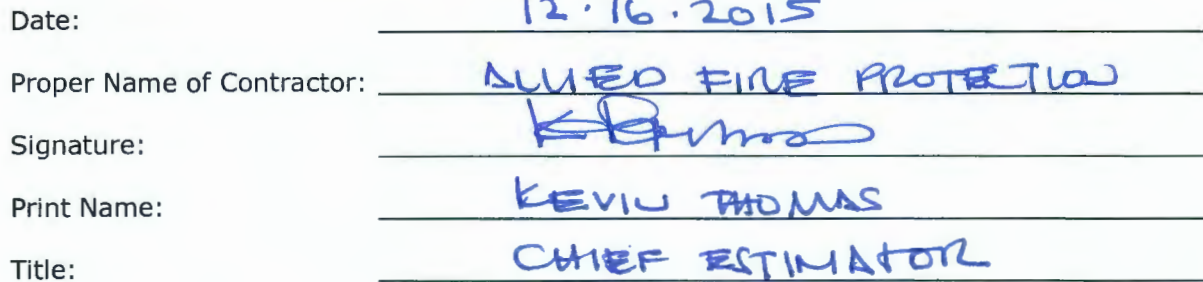 Date: 12.16.2015
Proper Name of Contractor: ALLIED FIRE PROTECTION
Signature:
Print Name: KEVIN THOMAS
Title: CHIEF ESTIMATOR